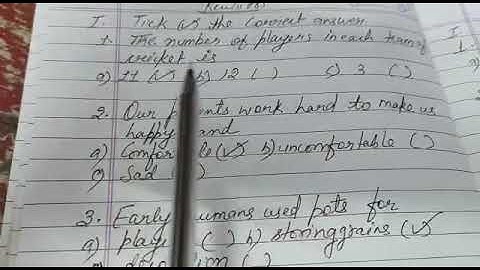 I. Tick (✓) the correct answer.
1. The number of players in each team of
cricket is
a) 11 (✓) b) 12 ( ) c) 3 ( )
2. Our work hard to make us
happy and
a) (✓) b) uncomfortable ( )
c) Sad ( )
3. Early used pots for
a) ( ) b) storing grains (✓)
( )